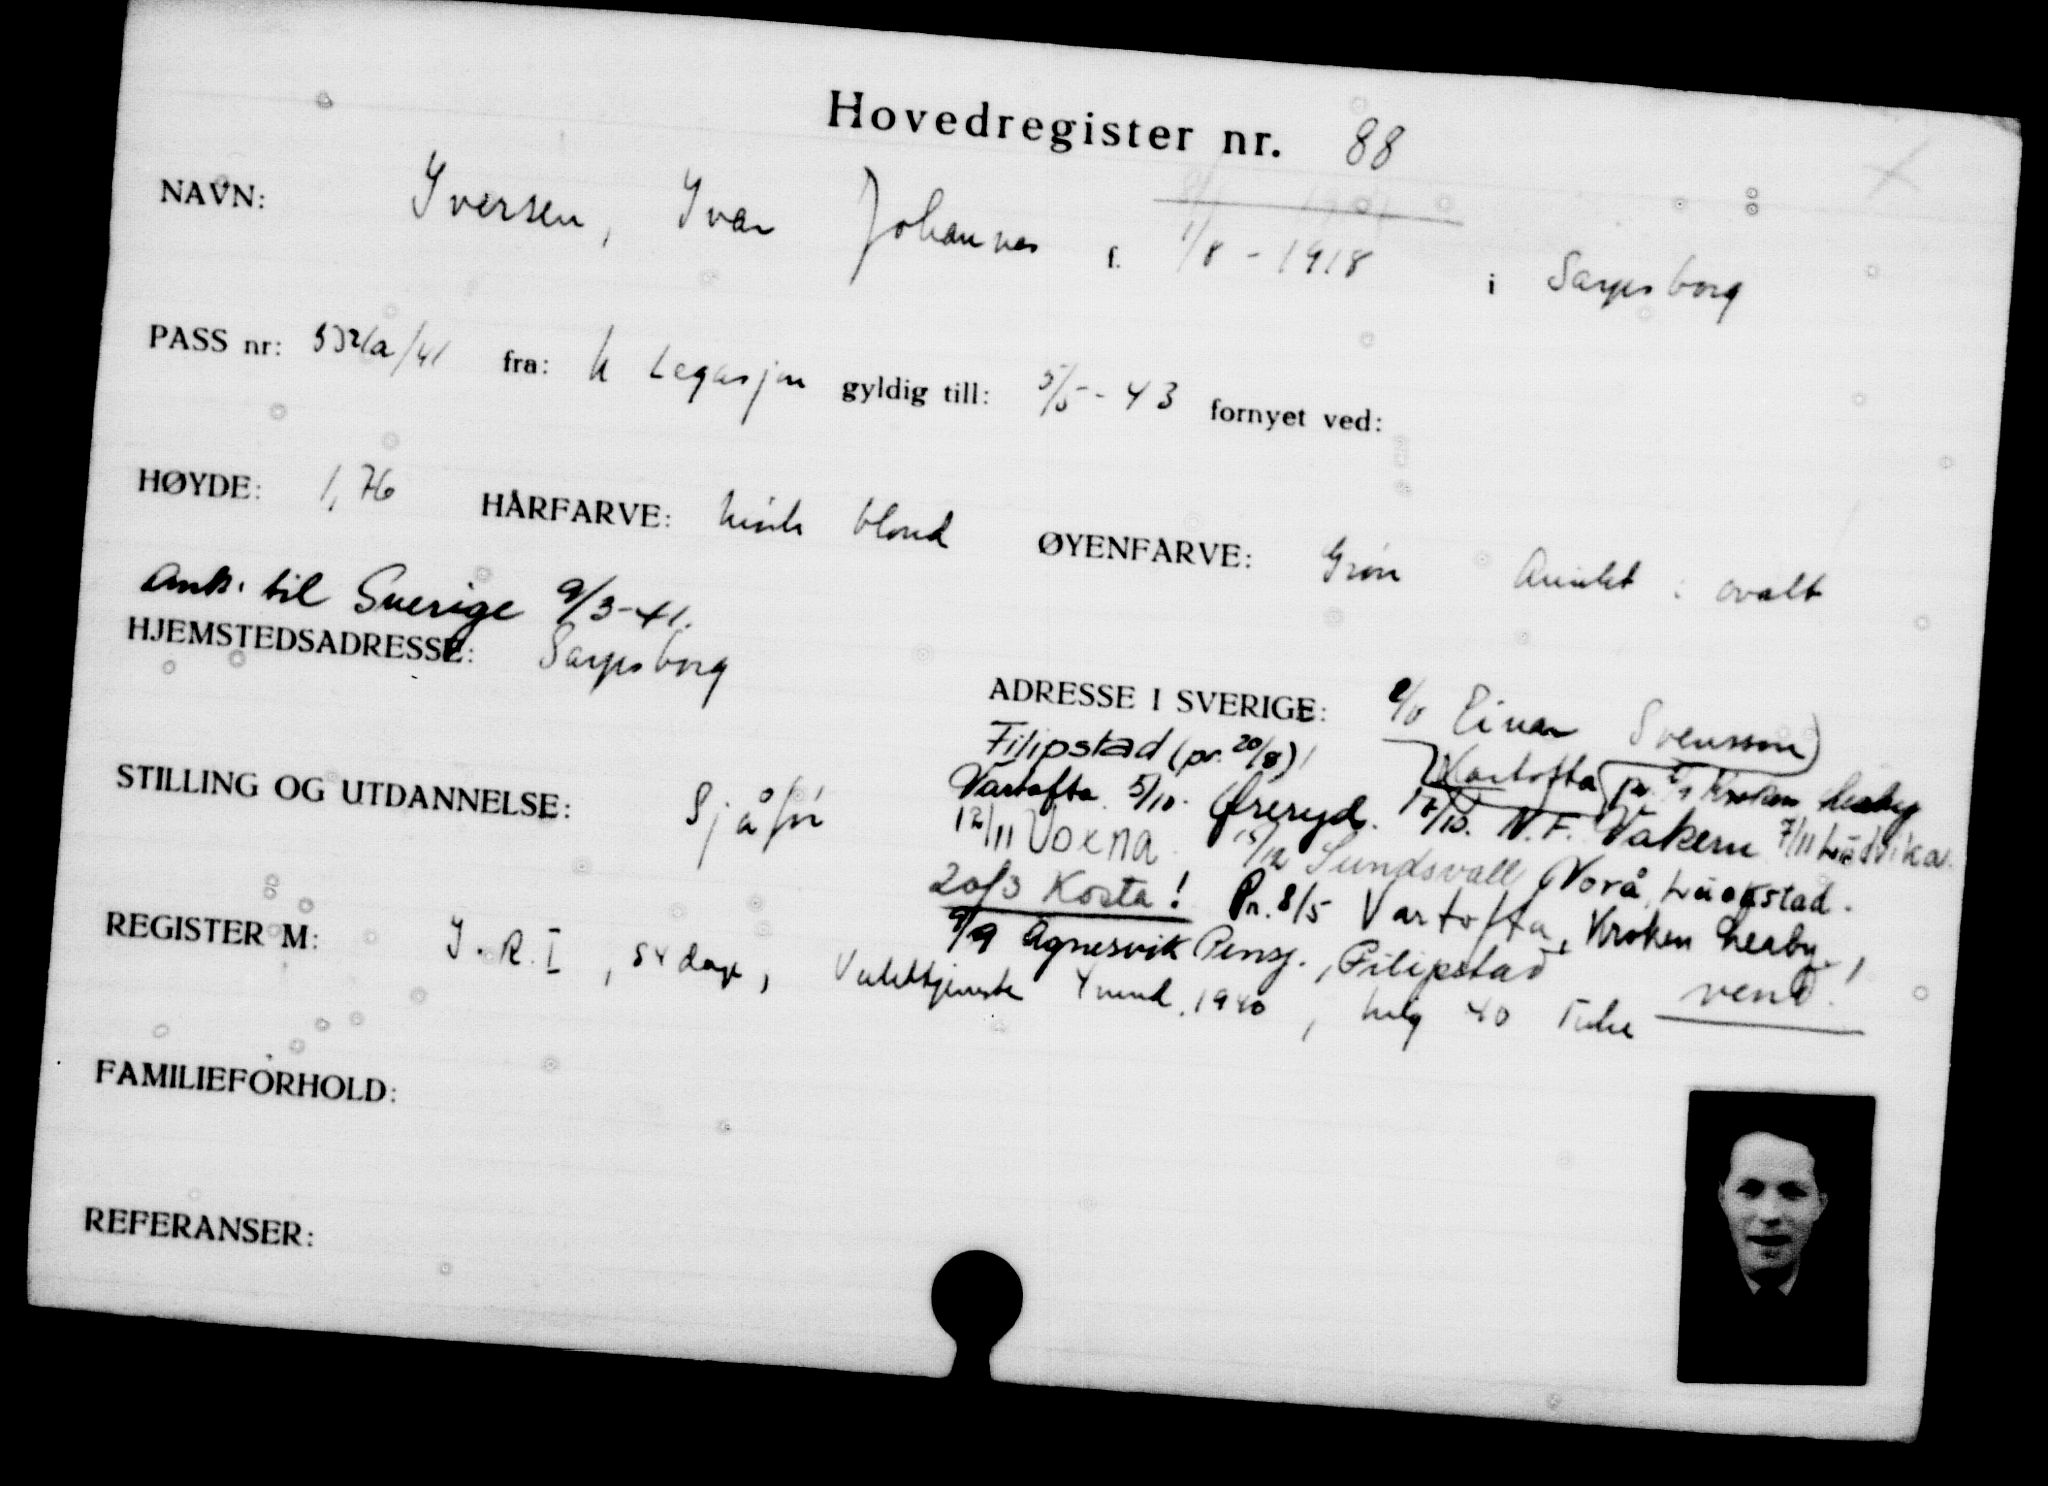 Hovedregister nr. 88
NAVN: Iversen, Ivar Johannes f. 1/8 - 1918 i Sarpsborg
PASS nr: 532 a/41 fra: k Legasjon gyldig till: 5/5 - 43 fornyet ved:
HØYDE: 1,76 HÅRFARVE: mørk blond ØYENFARVE: Grøn Ansikt : ovalt
Ank. til Sverige 9/3-41.
HJEMSTEDSADRESSE: Sarpsborg
ADRESSE I SVERIGE: c/o Einar Svensson
Filipstad (pr. 20/8) Vartofta pr. Kroken Leaby
Vartofta 5/10. Øreryd. 10/10. N.F. Vakern 7/11 Ludvika.
STILLING OG UTDANNELSE: Sjåfør
12/11 Voxna. 15/12 Sundsvall Norå,
20/3 Kosta! Pr. 8/5 Vartofta, Kroken Leaby,
9/9 Agnesvik Pensj., Filipstad vend!
REGISTER M: I.R.I, 54 dage, Vakttjeneste 4 mnd. 1940, 40
FAMILIEFORHOLD:
REFERANSER: